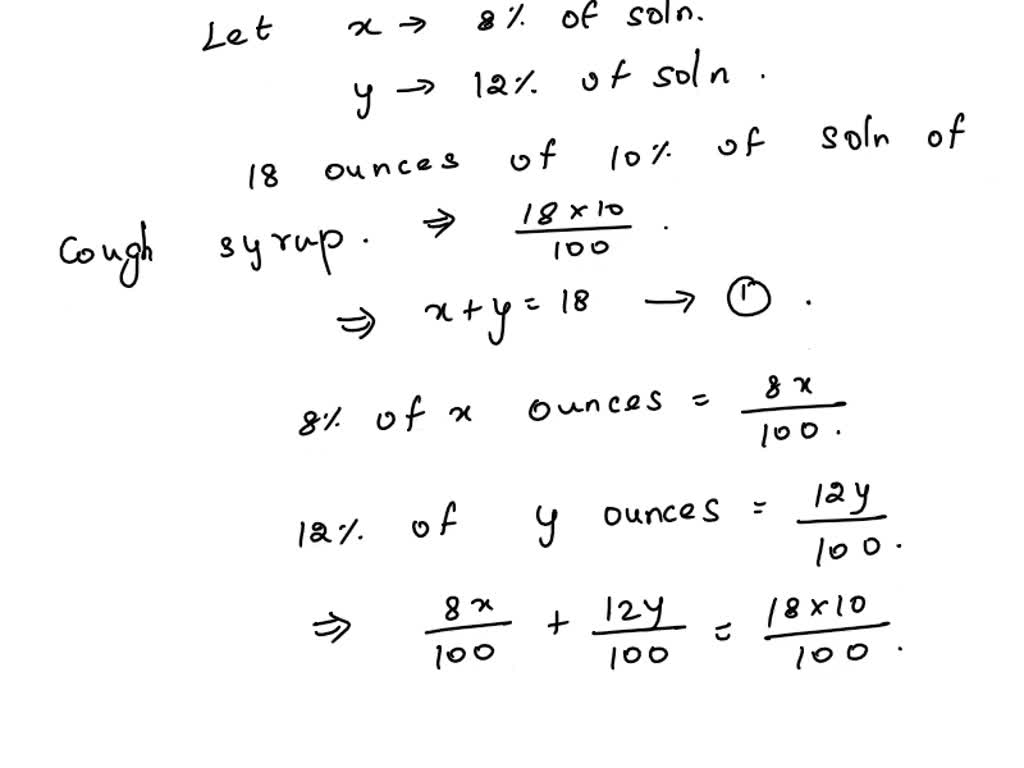 Let x → 8% of soln.
y → 12% of soln.
18 ounces of 10% of soln of
Cough syrup. ⇒ 18 × 10 / 100.
⇒ x + y = 18 → ①.
8% of x ounces = 8x / 100.
12% of y ounces = 12y / 100.
⇒ 8x / 100 + 12y / 100 = 18 × 10 / 100.